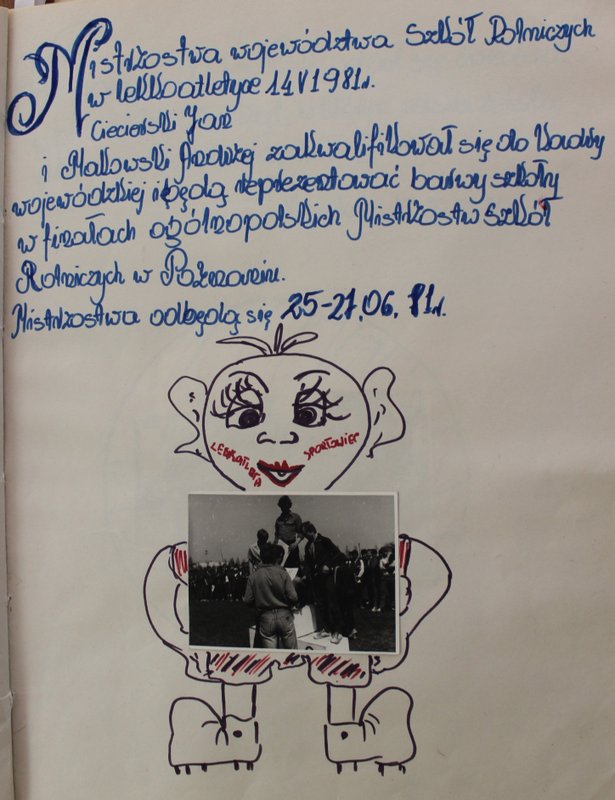 Mistrzostwa województwa Szkół Rolniczych
w lekkoatletyce 14 V 1981r.
Cieciorski Jan
i Makowski Andrzej zakwalifikował się do kadry
wojewódzkiej i będą reprezentować barwy szkoły
w finałach ogólnopolskich Mistrzostw Szkół
Rolniczych w Poznaniu.
Mistrzostwa odbędą się 25-27.06.81r.
LEKKOATLETA
SPORTOWIEC